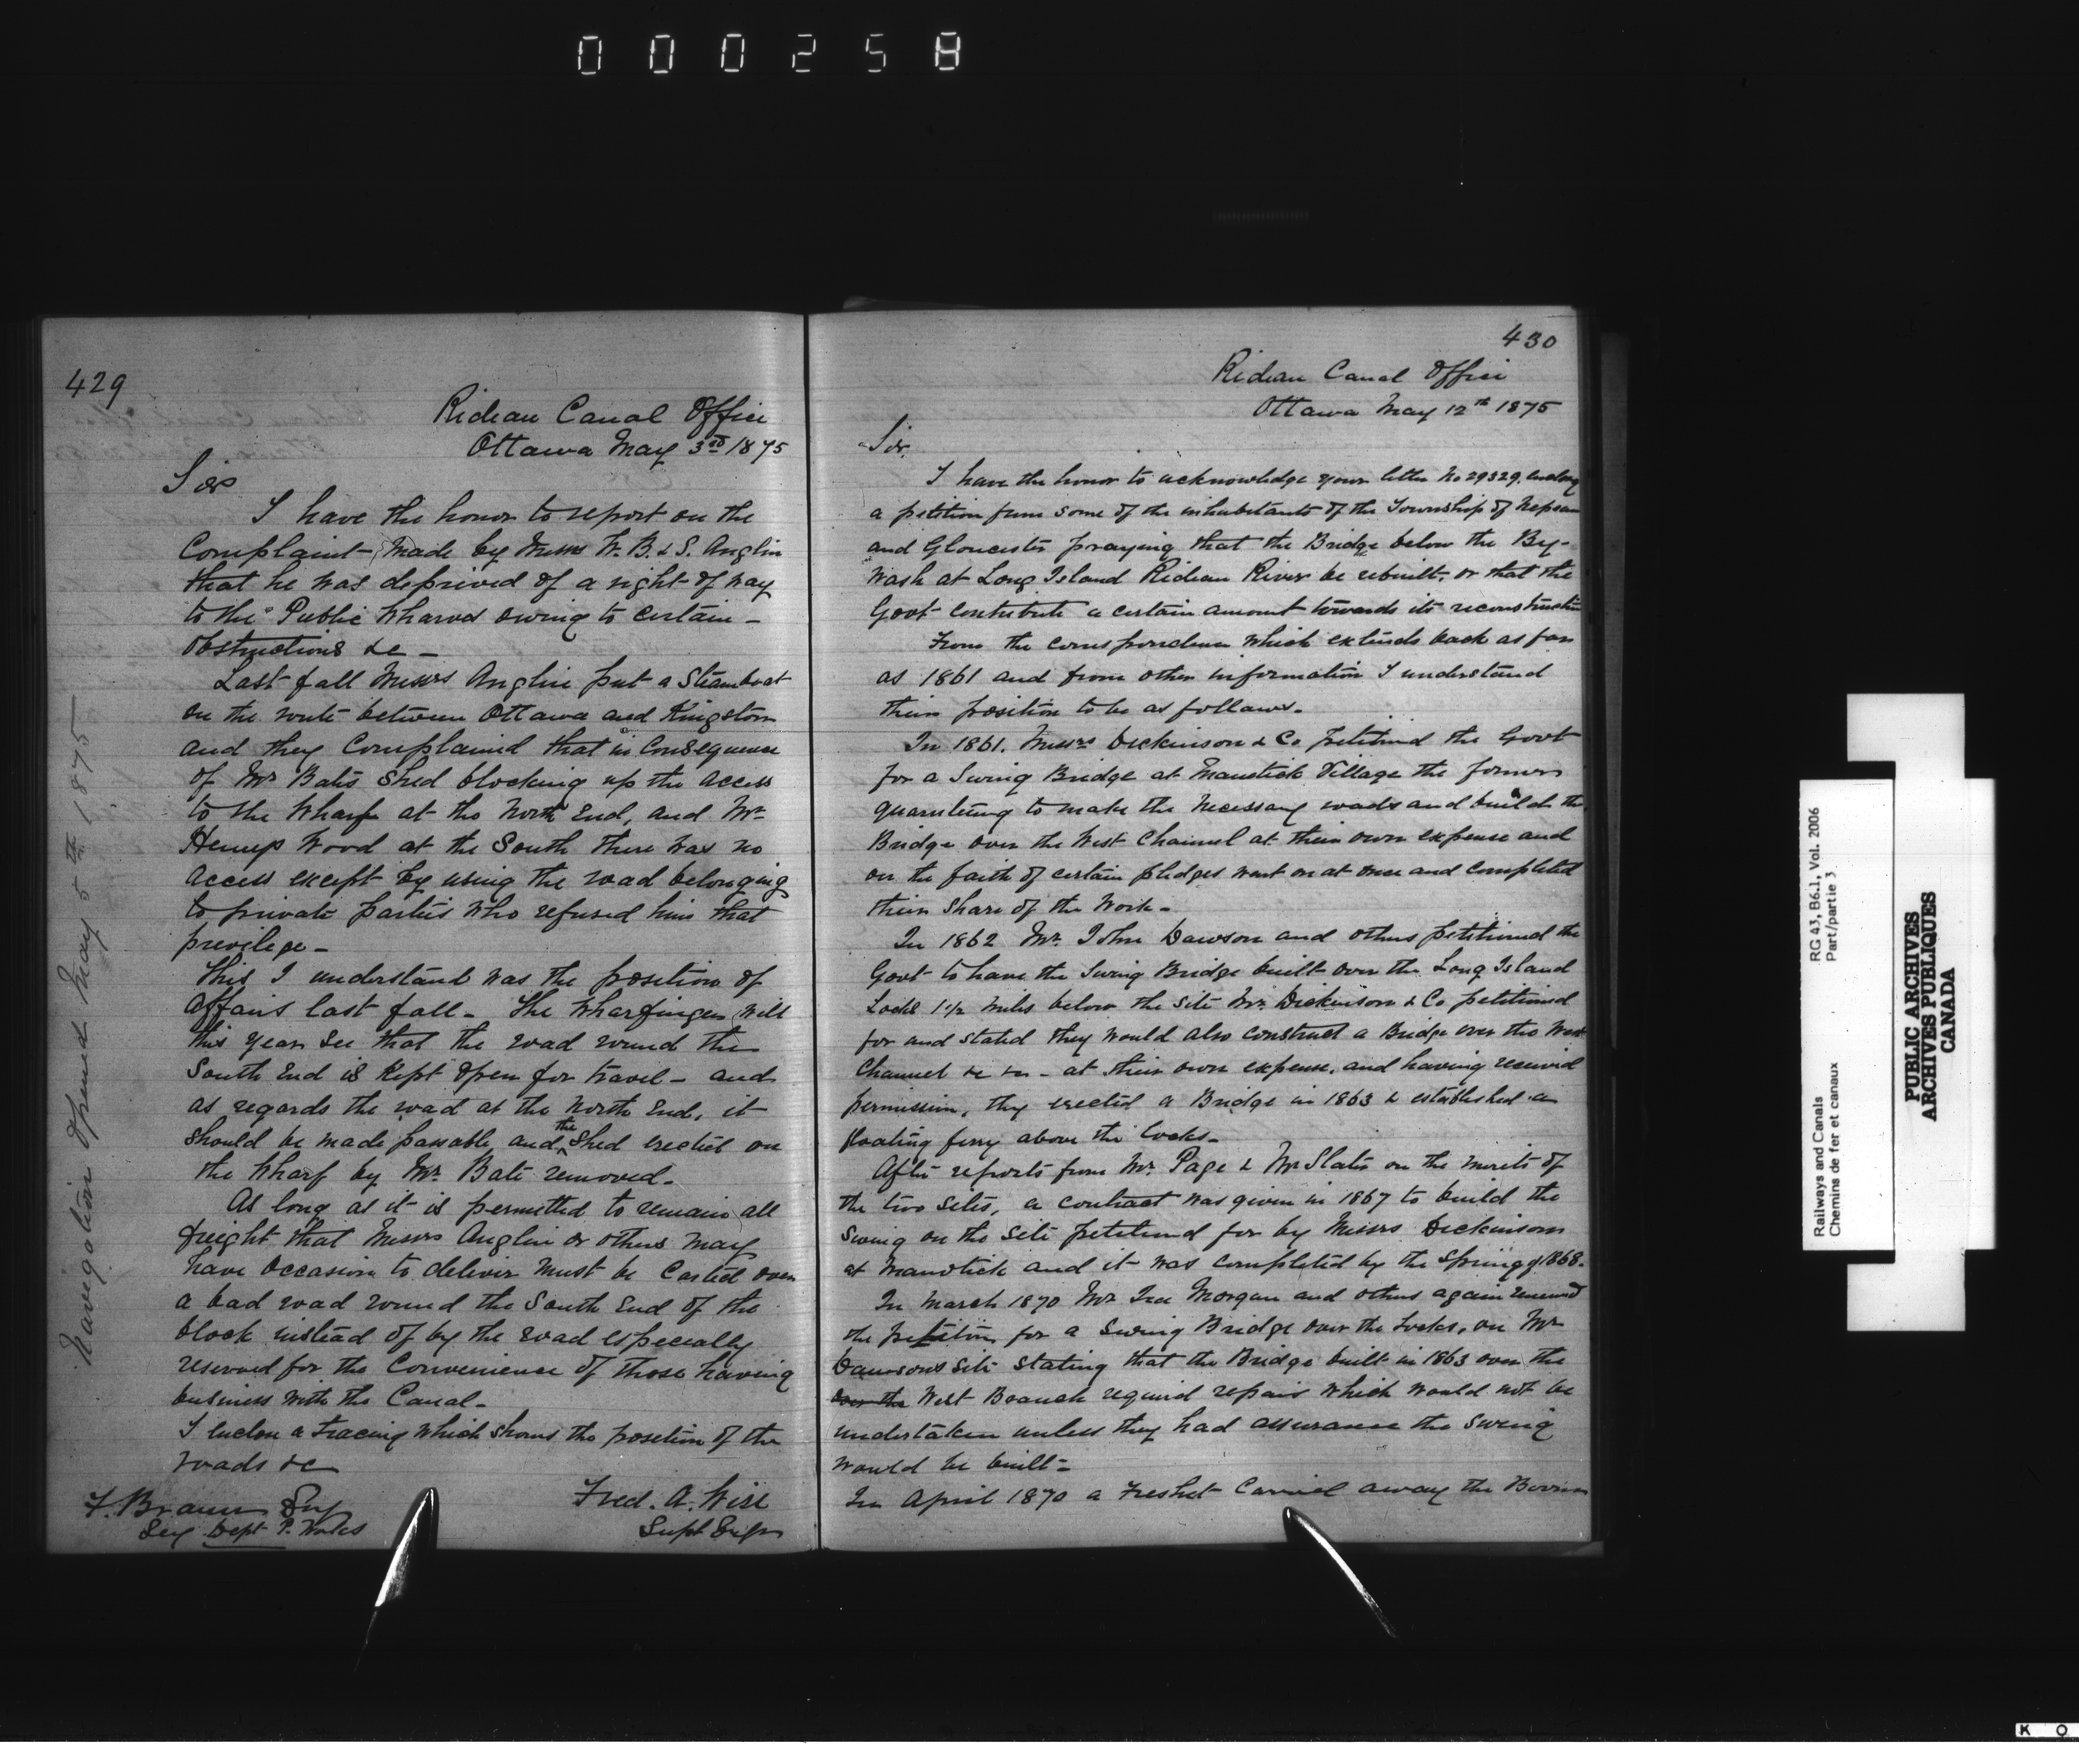 000258
429
Rideau Canal Office
Ottawa May 3rd 1875
Sir
I have the honor to report on the
Complaint made by Messrs W. B. & S. Anglin
that he was deprived of a right of way
to the Public Wharves owing to certain -
obstructions &c -
Last fall Messrs Anglin put a Steamboat
on the route between Ottawa and Kingston
and they Complained that in Consequence
of Mr Bates Shed blocking up the access
to the Wharf at the North End, and Mr
Wood at the South there was no
access except by using the road belonging
to private parties who refused him that
privilege -
This I understand was the position of
affairs last fall - The Wharfinger will
this year see that the road round the
South End is Kept open for travel - and
as regards the road at the North End, it
should be made passable and the Shed erected on
the Wharf by Mr. Bate removed.
As long as it is permitted to remain all
freight that Messrs Anglin or others may
have occasion to deliver must be Carted over
a bad road round the South End of the
block instead of by the road especially
reserved for the Convenience of those having
business with the Canal -
I enclose a tracing which shows the position of the
roads &c
F. Braun Esq
Secy Dept P. Works
Fred. A. Wise
Supt Engr
Navigation Opened May 5th 1875
430
Rideau Canal Office
Ottawa May 12th 1875
Sir.
I have the honor to acknowledge your letter No 29329, enclosg
a petition from some of the inhabitants of the Township of Nepean
and Gloucester praying that the Bridge below the By-
Wash at Long Island Rideau River be rebuilt, or that the
Govt contribute a certain amount towards its reconstruction
From the correspondence which extends back as far
as 1861 and from other information I understand
their position to be as follows.
In 1861. Messrs Dickinson & Co petitioned the Govt
for a Swing Bridge at Manotick Village the former
guaranteeing to make the necessary roads and build the
Bridge over the West Channel at their own expense and
on the faith of certain pledges went on at once and Completed
their share of the Work -
In 1862 Mr. John Dawson and others petitioned the
Govt to have the Swing Bridge built over the Long Island
Locks 1 1/2 miles below the site Mr. Dickinson & Co petitioned
for and stated they would also construct a Bridge over the West
Channel &c &c - at their own expense, and having received
permission, they erected a Bridge in 1863 & established a
floating ferry above the Locks -
After reports from Mr. Page & Mr Slater on the merits of
the two sites, a contract was given in 1867 to build the
Swing on the site petitioned for by Messrs Dickinson
at Manotick and it was completed by the spring of 1868.
In March 1870 Mr Ira Morgan and others again renewed
the petition for a Swing Bridge over the Locks, on Mr
Dawsons site stating that the Bridge built in 1863 over the
over the West Branch required repairs which would not be
undertaken unless they had assurance the swing
would be built -
In April 1870 a Freshet Carried away the
RG 43, B6.1, Vol. 2006
Part/partie 3
Railways and Canals
Chemins de fer et canaux
PUBLIC ARCHIVES
ARCHIVES PUBLIQUES
CANADA
K O